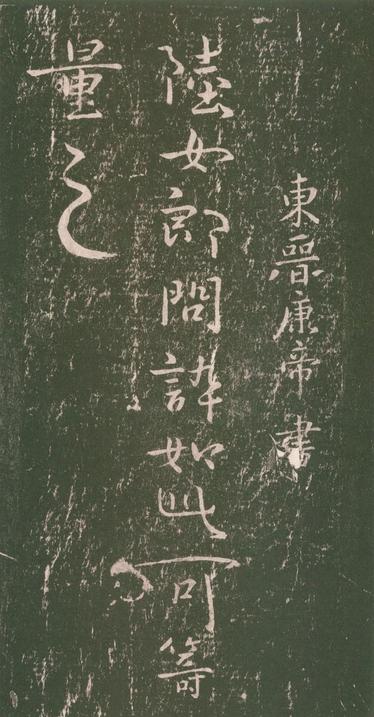 東晉康帝書
陸女郎問訃如此可籌
量之